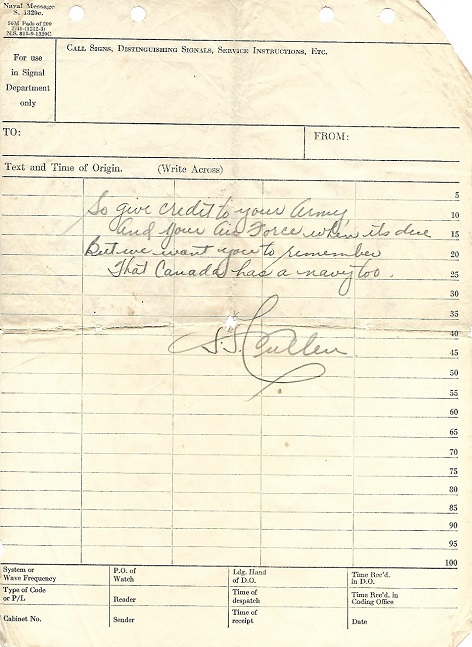 Naval Message
S. 1320c.
CALL SIGNS, DISTINGUISHING SIGNALS, SERVICE INSTRUCTIONS, ETC.
For use
in Signal
Department
only
TO:
FROM:
Text and Time of Origin. (Write Across)
5
So give credit to your Army
10
And your Air Force when its due
15
But we want you to remember
20
That Canada has a navy too.
25
30
35
40
Cullen
45
50
55
60
65
70
75
80
85
90
95
100
System or
Wave Frequency
P.O. of
Watch
Ldg. Hand
of D.O.
Time Rec'd.
in D.O.
Type of Code
or P/L
Reader
Time of
despatch
Time Rec'd. in
Coding Office
Cabinet No.
Sender
Time of
receipt
Date